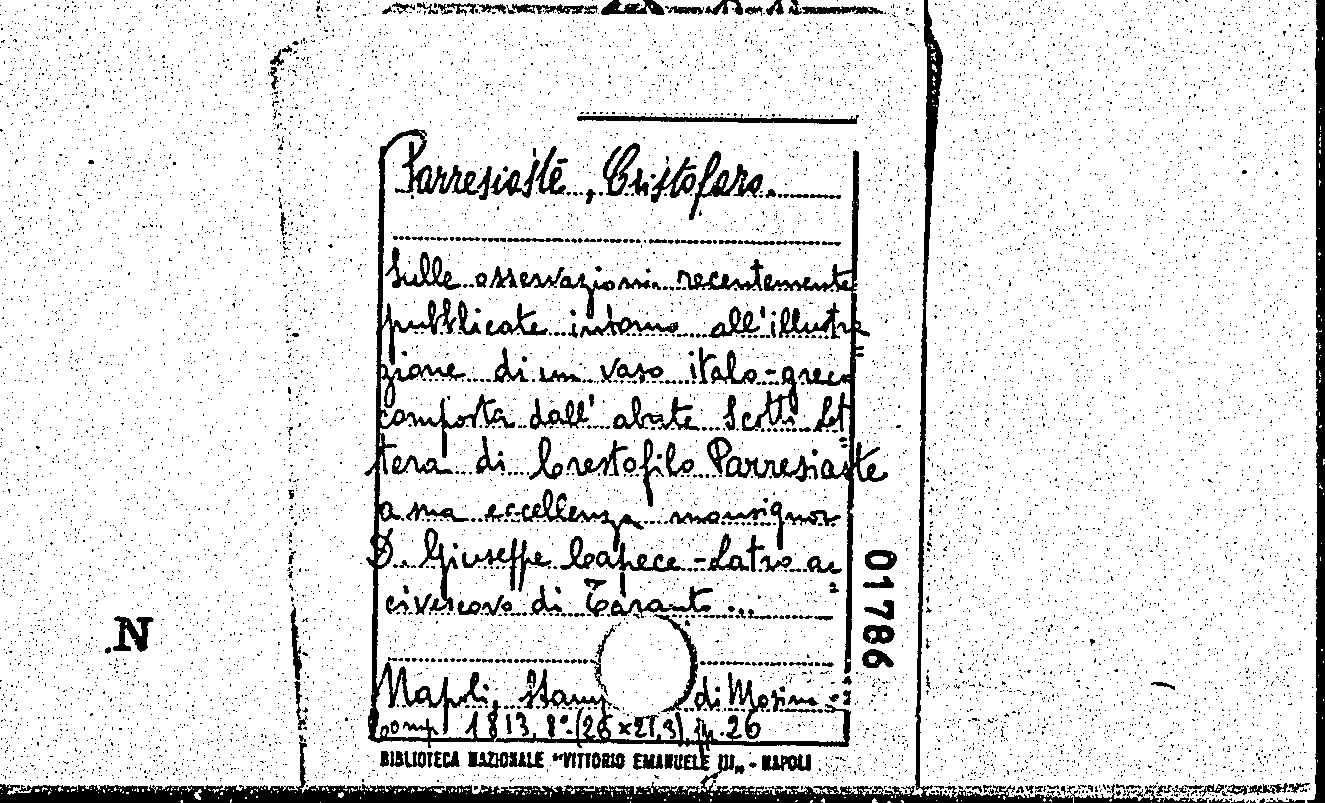 Parresiaste, Cristofaro.
Sulle osservazioni recentemente
pubblicate intorno all'illustra
zione di un vaso italo-greco
composta dall' abate Scotti Let
tera di Crestofilo Parresiaste
a sua eccellenza monsignor
D. Giuseppe Capece-Latro ar
civescovo di Taranto ...
Napoli, Stamp di Mosino
Comp 1813, 8°.(26 x 21,3), pp. 26
BIBLIOTECA NAZIONALE "VITTORIO EMANUELE III„ - NAPOLI
01786
.N